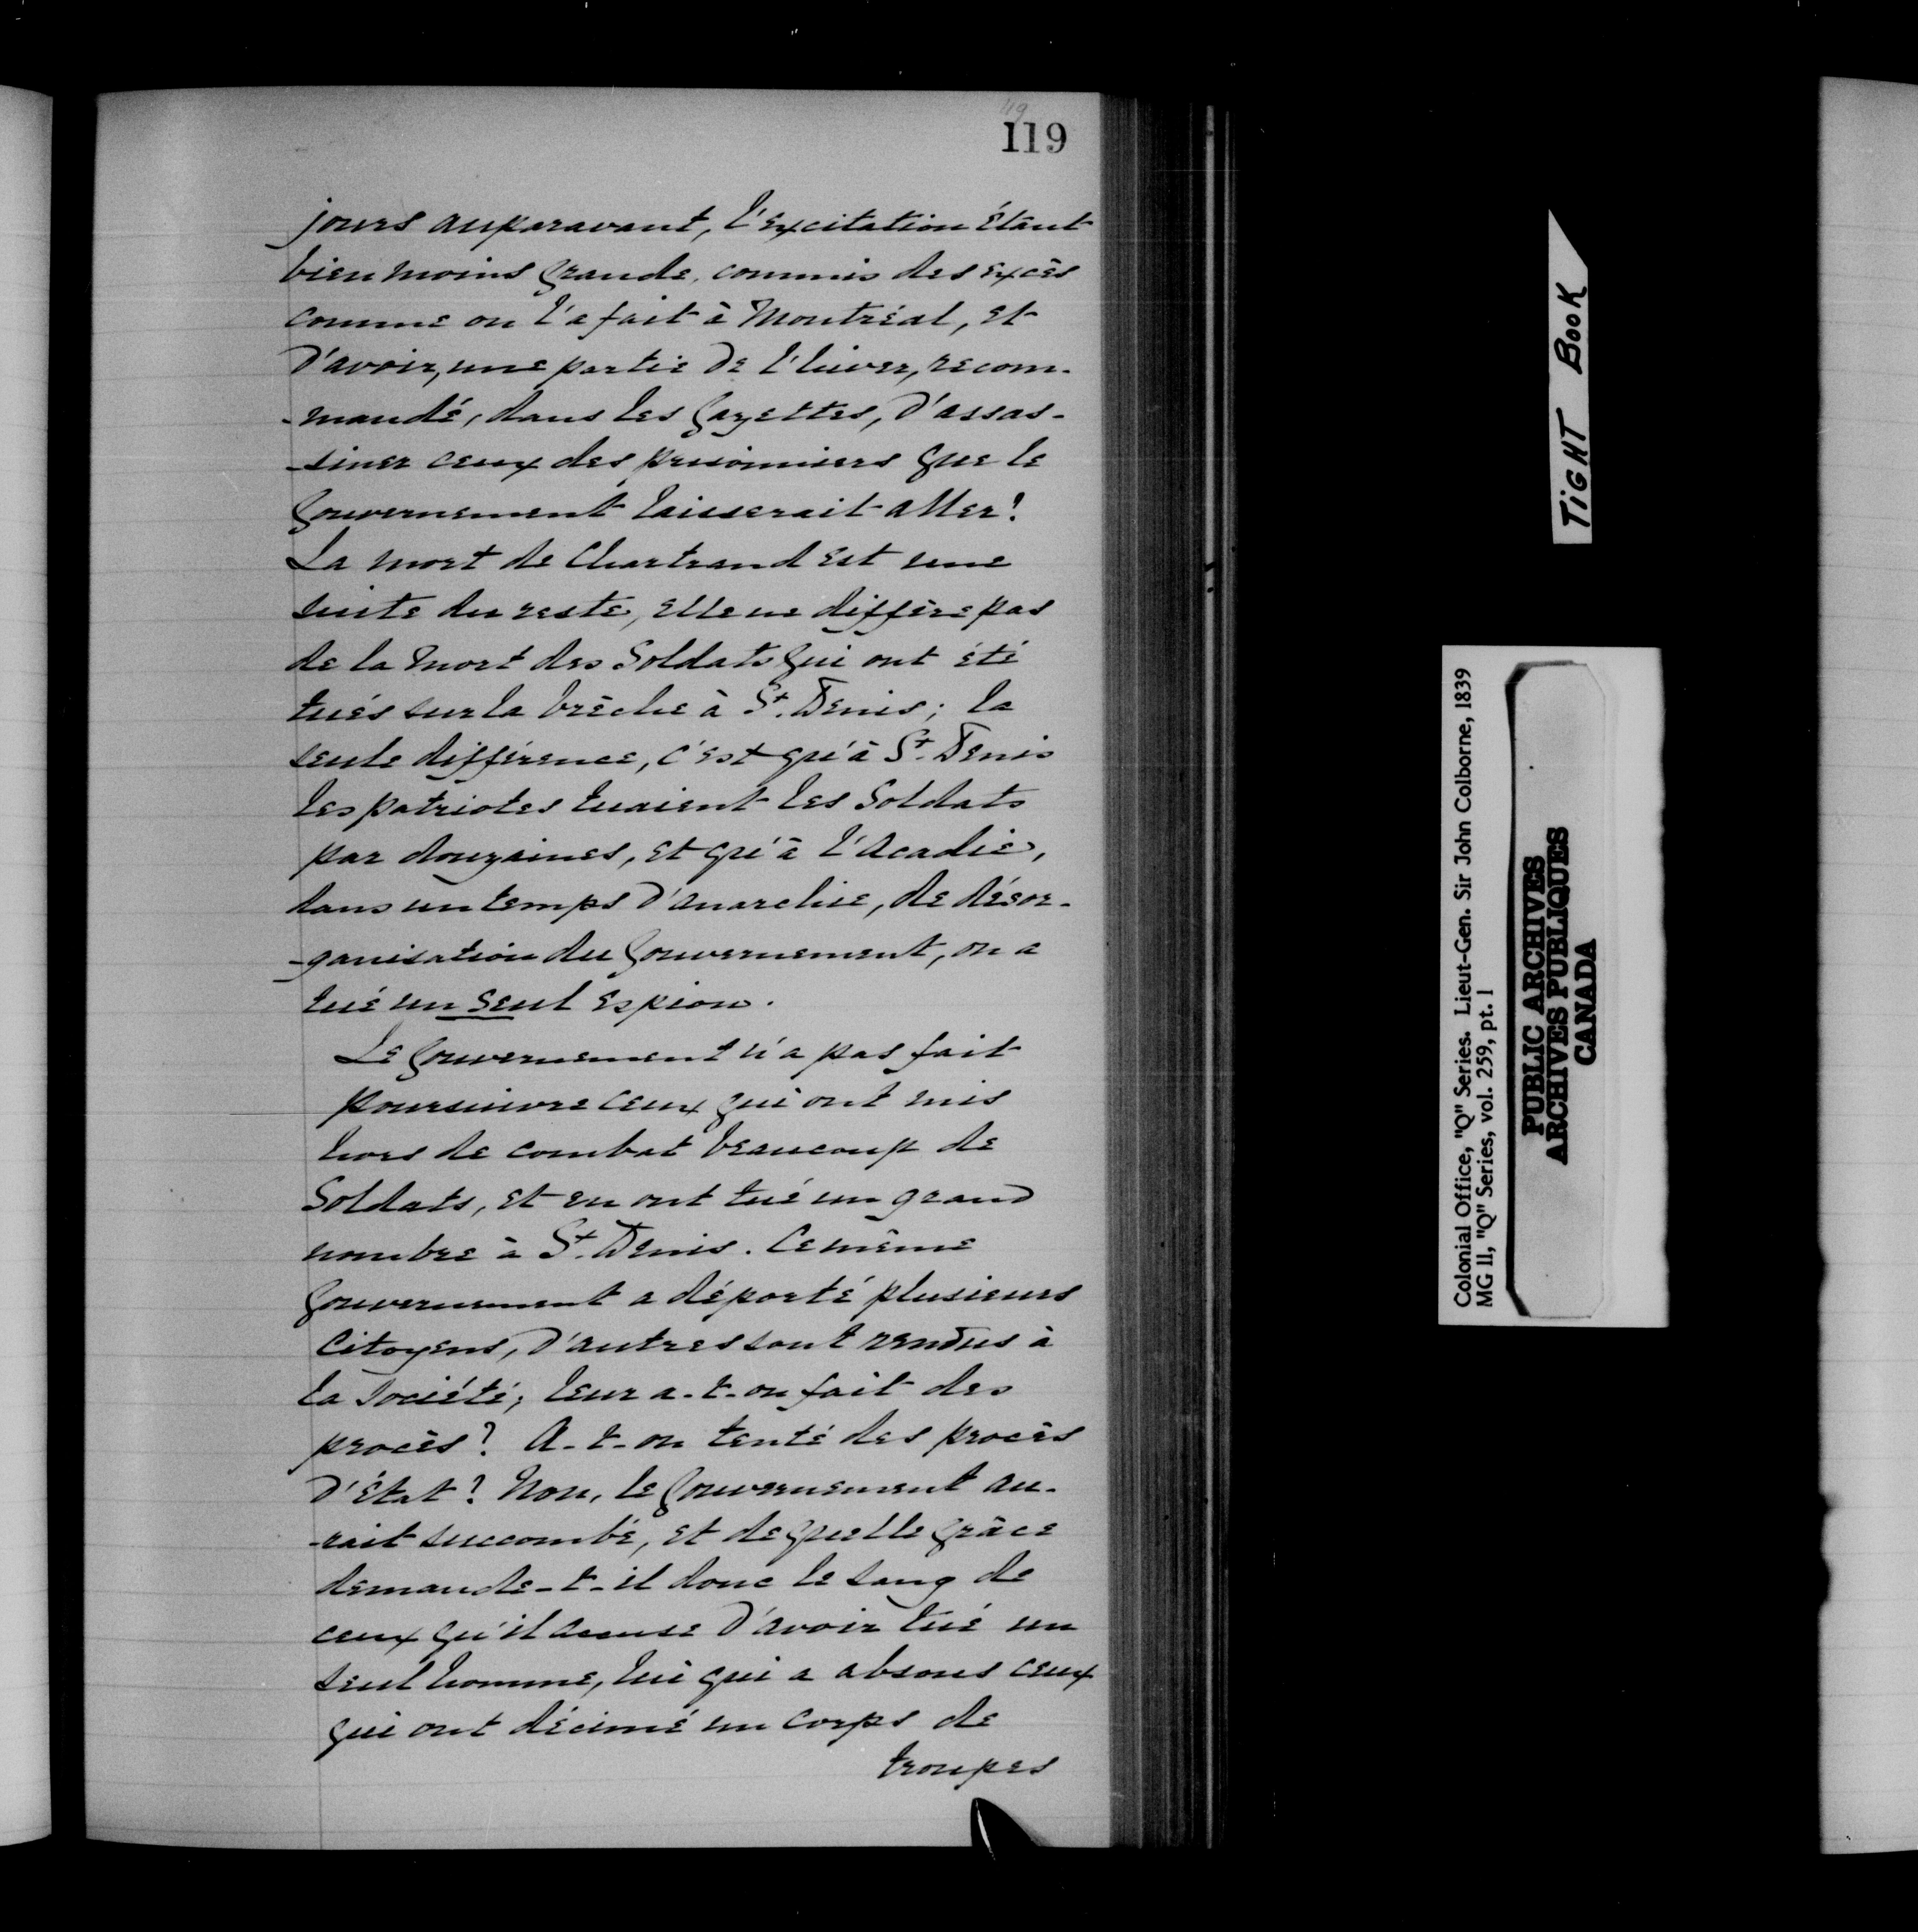 119
119
jours auparavant, l'excitation étant
bien moins grande, commis des excès
comme on l'a fait à Montréal, et
d'avoir, une partie de l'hiver, recom-
-mandé, dans les Gazettes, d'assas-
-siner ceux des prisonniers que le
Gouvernement laisserait aller?
La mort de Chartrand est une
suite du reste, elle ne diffère pas
de la mort des Soldats qui ont été
tués sur la brèche à St. Denis; la
seule différence, c'est qu'à St. Denis
les patriotes tuaient les Soldats
par douzaines, et qu'à l'Acadie,
dans un temps d'anarchie, de désor-
-ganisation du Gouvernement, on a
tué un seul espion.
Le Gouvernement n'a pas fait
poursuivre ceux qui ont mis
hors de combat beaucoup de
Soldats, et en ont tué un grand
nombre à St. Denis. Ce même
Gouvernement a déporté plusieurs
Citoyens, d'autres sont rendus à
la Société; leur a-t-on fait des
procès? A-t-on tenté des procès
d'État? Non, le Gouvernement au-
-rait succombé, et de quelle grâce
demande-t-il donc le sang de
ceux qu'il accuse d'avoir tué un
seul homme, lui qui a absous ceux
qui ont décimé un corps de
troupes
TIGHT BOOK
Colonial Office, "Q" Series. Lieut-Gen. Sir John Colborne, 1839
MG II, "Q" Series, vol. 259, pt. 1
PUBLIC ARCHIVES
ARCHIVES PUBLIQUES
CANADA